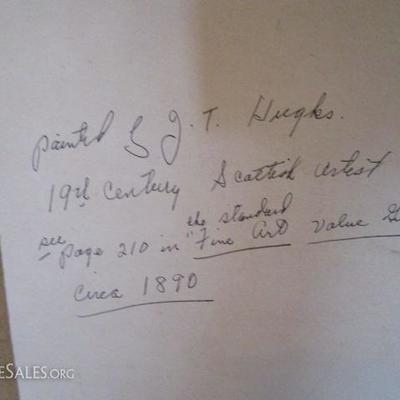 painted by J. T. Hughs.
19th Century Scottish Artist
see page 210 in the standard "Fine Art Value G
Circa 1890
eSales.org